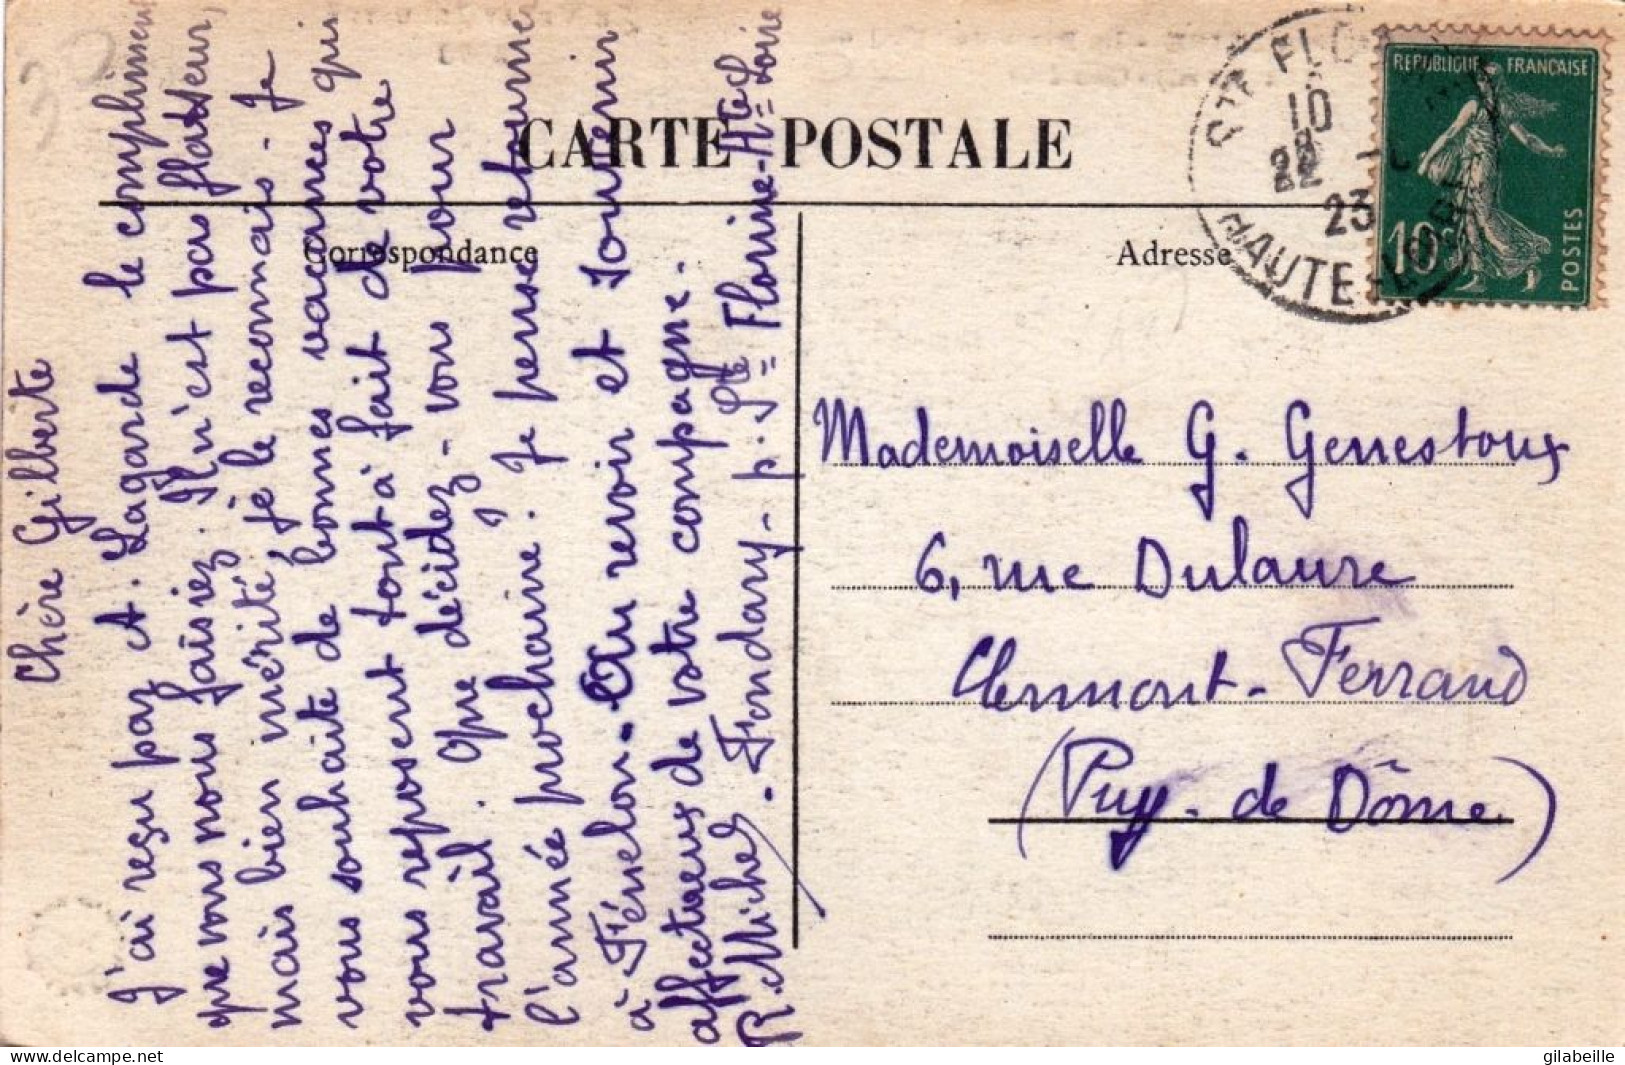 CARTE POSTALE
Correspondance
Adresse
REPUBLIQUE FRANÇAISE
10c
POSTES
STE FLO
10
22
23
HAUTE-LOIRE
Chère Gilberte
J'ai reçu par A. Lagarde le compliment
que vous nous faisiez. Il n'est pas flatteur,
mais bien mérité, je le reconnais - Je
vous souhaite de bonnes vacances qui
vous reposent tout à fait de votre
travail. Que décidez-vous pour
l'année prochaine? Je pense retourner
à Fénelon. Au revoir et souvenir
affectueux de votre compagne.
R. Michel - Fondary - p. Ste Florine - Hte Loire
Mademoiselle G. Genestoux
6, rue Dulaure
Clermont-Ferrand
(Puy-de Dôme)
delcampe.net
gilabeille